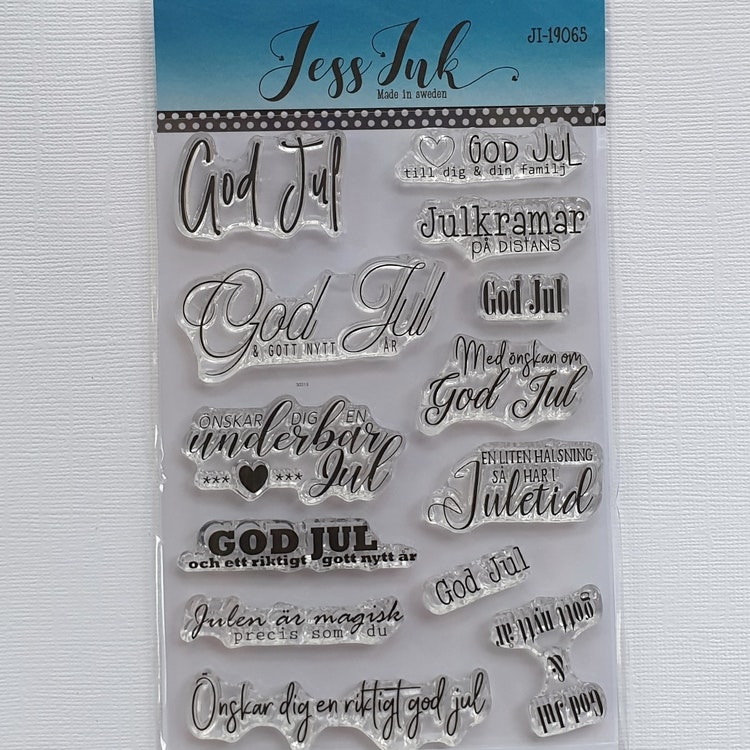 Jess Ink
Made in sweden
JI-19065
God Jul
GOD JUL
till dig & din familj
Julkramar
PÅ DISTANS
God Jul
& GOTT NYTT ÅR
God Jul
Med önskan om
God Jul
ÖNSKAR DIG EN
underbar
*** ***
Jul
EN LITEN HÄLSNING
SÅ HÄR I
Juletid
GOD JUL
och ett riktigt gott nytt år
God Jul
Julen är magisk
precis som du
God Jul
&
gott nytt år
Önskar dig en riktigt god jul